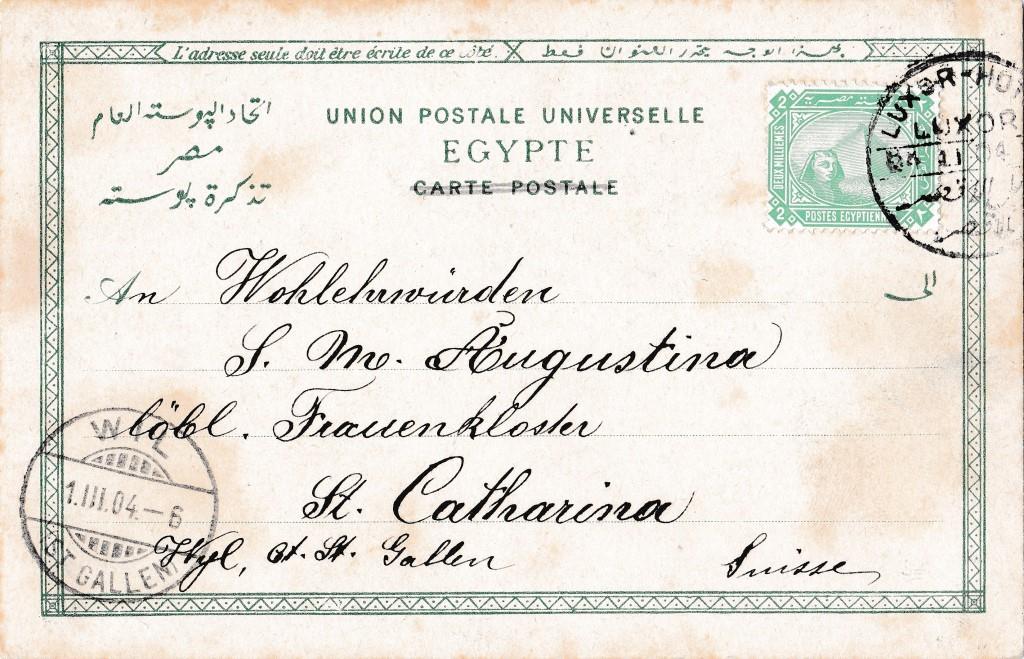 L'adresse seule doit être écrite de ce côté.
بهذا الوجه يحرر العنوان فقط
اتحاد البوسته العام
مصر
تذكرة بوسته
UNION POSTALE UNIVERSELLE
EGYPTE
CARTE POSTALE
2
DEUX MILLIEMES
2
POSTES EGYPTIEN
٢
LUXOR-HO
LUXOR
II 04
الاقصر
الى
An Wohlehrwürden
S. M. Augustina
löbl. Frauenkloster
St. Catharina
Wyl, Ct. St. Gallen Suisse
WIL
1.III.04.-6
ST GALLEN